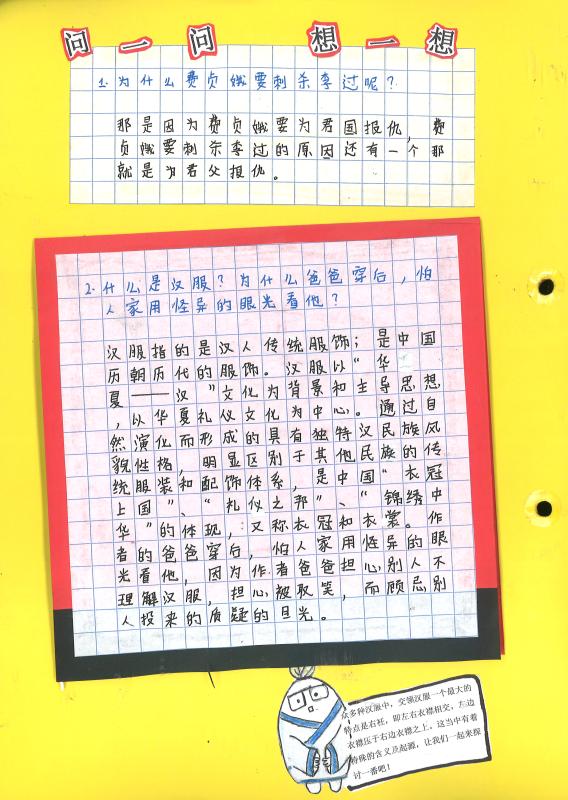 问一问 想一想
1. 为什么费贞娥要刺杀李过呢?
那是因为费贞娥要为君国报仇,费
贞娥要刺杀李过的原因还有一个那
就是为君父报仇。
2. 什么是汉服?为什么爸爸穿后,怕
人家用怪异的眼光看他?
汉服指的是汉人传统服饰;是中国
历朝历代的服饰。汉服以“华
夏——汉”文化为背景和主导思想
,以华夏礼仪文化为中心。通过自
然演化而形成的具有独特汉民族风
貌性格,明显区别于其他民族的传
统服装和配饰体系,是中国“衣冠
上国”、“礼仪之邦”、“锦绣中
华”的体现,又称衣冠和衣裳。作
者的爸爸穿后,怕人家用怪异的眼
光看他,因为作者爸爸担心别人不
理解汉服,担心被取笑,而顾忌别
人投来的质疑的目光。
众多种汉服中,交领汉服一个最大的
特点是右衽,即左右衣襟相交,左边
衣襟压于右边衣襟之上。这当中有着
特殊的含义及起源,让我们一起来探
讨一番吧!